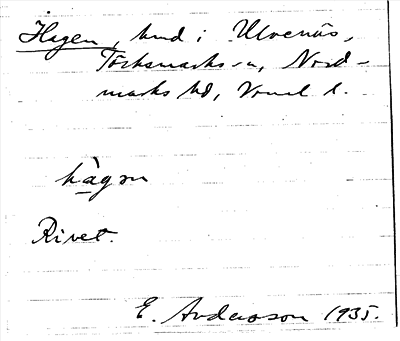 Hagen, hmd i Ulvenäs,
Töcksmarks sn, Nord-
marks hd, Vrml l.
hagen
Rivet.
E. Andersson 1935.